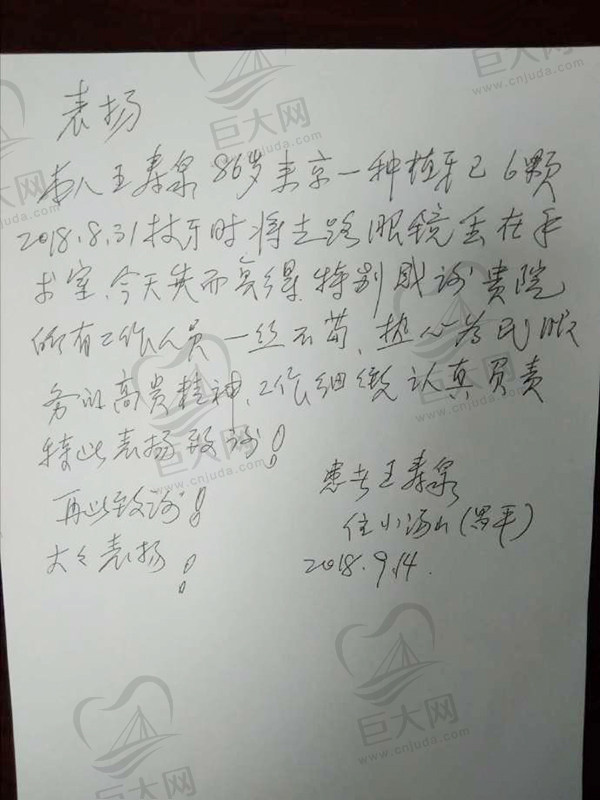 表扬
本人王寿泉86岁来京一种植牙已6颗
2018.8.31拔牙时将走路眼镜丢在手
术室,今天失而复得,特别感谢贵院
所有工作人员一丝不苟、热心为民服
务的高贵精神,工作细致认真负责
特此表扬致谢!
再此致谢!
大大表扬!
患者王寿泉
住小汤山(昌平)
2018.9.14.
巨大网
www.cnjuda.com